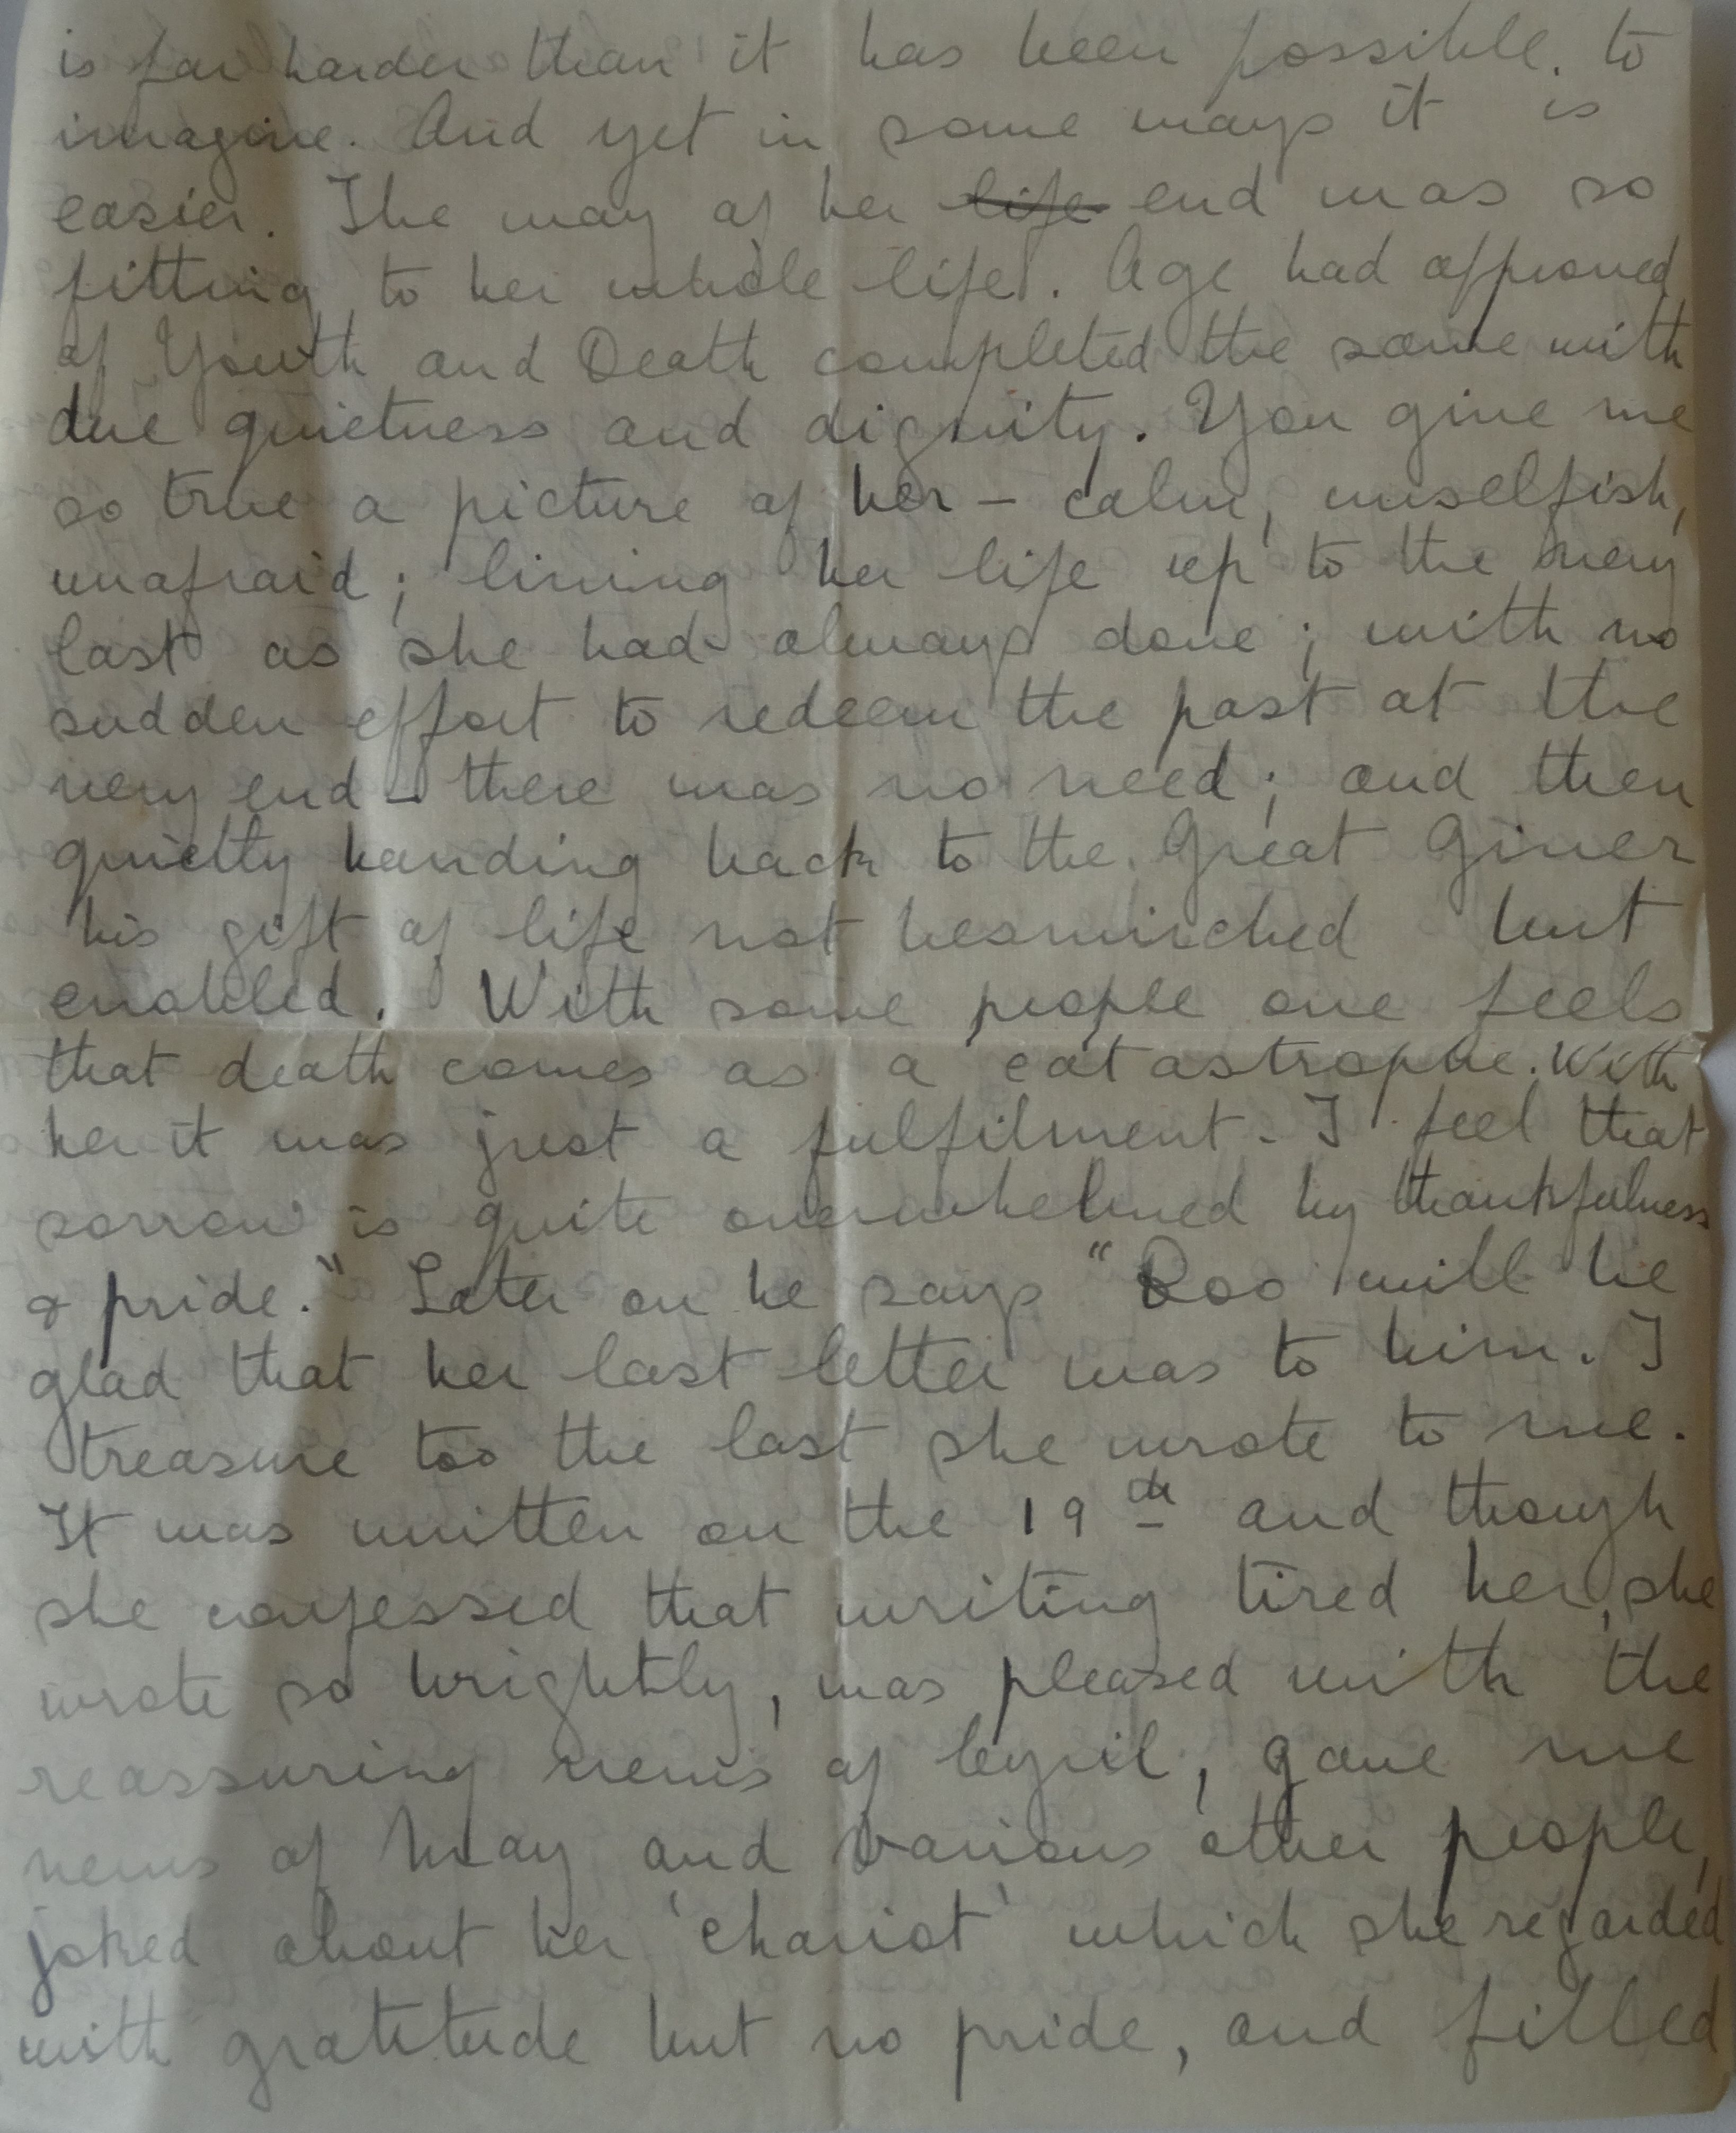 is far harder than it has been possible to
imagine. And yet in some ways it is
easier. The way of her life end was so
fitting to her whole life. Age had approved
of Youth and Death completed the same with
due quietness and dignity. You give me
so true a picture of her – calm, unselfish,
unafraid; living her life up to the very
last as she had always done; with no
sudden effort to redeem the past at the
very end – there was no need; and then
quietly handing back to the Great Giver
his gift of life not besmirched but
enobled. With some people one feels
that death comes as a catastrophe. With
her it was just a fulfilment. I feel that
sorrow is quite overwhelmed by thankfulness
& pride." Later on he says "Roo will be
glad that her last letter was to him. I
treasure too the last she wrote to me.
It was written on the 19th and though
she confessed that writing tired her, she
wrote so brightly, was pleased with the
reassuring news of Cyril, gave me
news of May and various other people,
joked about her 'chariot' which she regarded
with gratitude but no pride, and filled